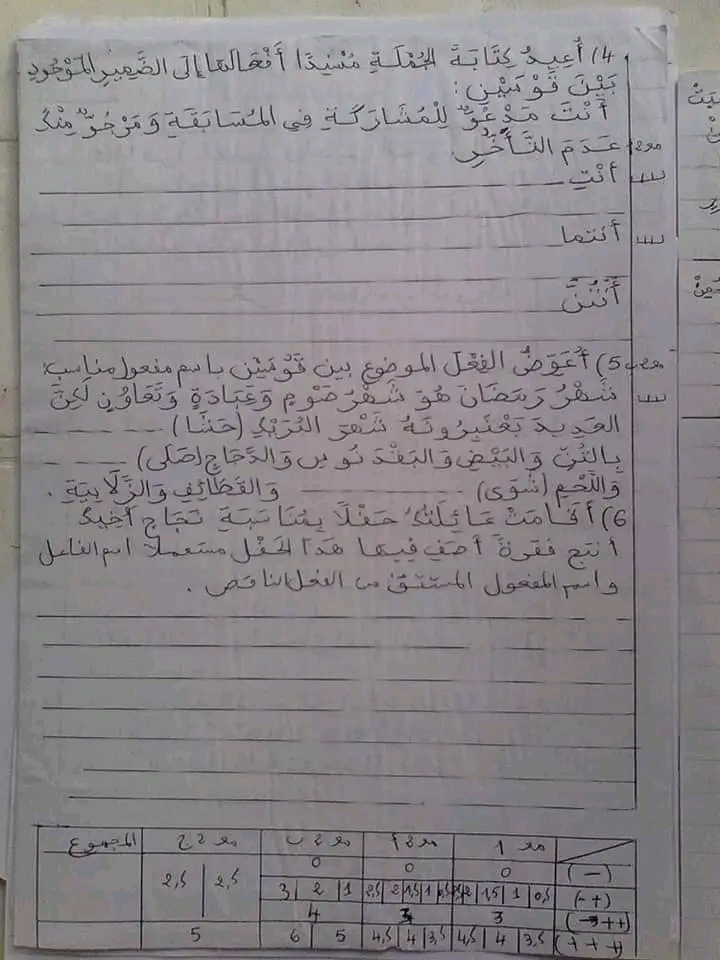 4) أُعِيدُ كِتَابَةَ الجُمْلَةِ مُسْنِدًا أَفْعَالَهَا إِلَى الضَّمِيرِ المَوْجُودِ
بَيْنَ قَوْسَيْنِ:
أَنْتَ مَدْعُوٌّ لِلْمُشَارَكَةِ فِي المُسَابَقَةِ وَمَرْجُوٌّ مِنْكَ
مع2أ عَدَمَ التَّأَخُّرِ.
أنْتِ
أنتما
أَنْتُنَّ
مع2ب 5) أُعَوِّضُ الفِعْلَ الموضوع بين قَوْسَيْنِ باسم مفعول مناسب:
شَهْرُ رَمَضَانَ هُوَ شَهْرُ صَوْمٍ وَعِبَادَةٍ وَتَعَاوُنٍ لَكِنَّ
العَدِيدَ يَعْتَبِرُونَهُ شَهْرَ البُرَيْكِ (حَشَا)
بِالتُّنِّ وَالبَيْضِ وَالبَقْدَنُوسِ وَالدَّجَاجِ (صَلَى)
وَاللَّحْمِ (شَوَى) وَالقَطَائِفِ وَالزَّلَابِيَةِ.
6) أَقَامَتْ عَائِلَتُكَ حَفْلًا بِمُنَاسَبَةِ نَجَاحِ أَخِيكَ
أنتج فقرةً أصف فيها هَذَا الحَفْل مستعملا اسم الفاعل
واسم المفعول المشتق من الفعل الناقص.
مع 1 مع 2أ مع 2ب مع 2ج المجموع
(---) 0 0 0
(+--) 0,5 1 1,5 2 1 1,5 2 2,5 1 2 3 2,5 2,5
(++-) 3 3 4
(+++) 3,5 4 4,5 3,5 4 4,5 5 6 5